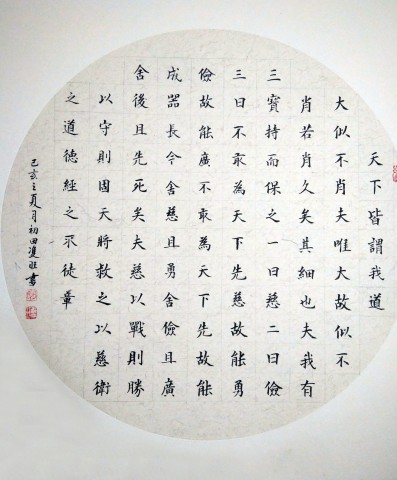 天下皆謂我道
大似不肖夫唯大故似不
肖若肖久矣其細也夫我有
三寶持而保之一曰慈二曰儉
三曰不敢為天下先慈故能勇
儉故能廣不敢為天下先故能
成器長今舍慈且勇舍儉且廣
舍後且先死矣夫慈以戰則勝
以守則固天將救之以慈衛
之道德經之徒章
己亥之夏月初田旺書